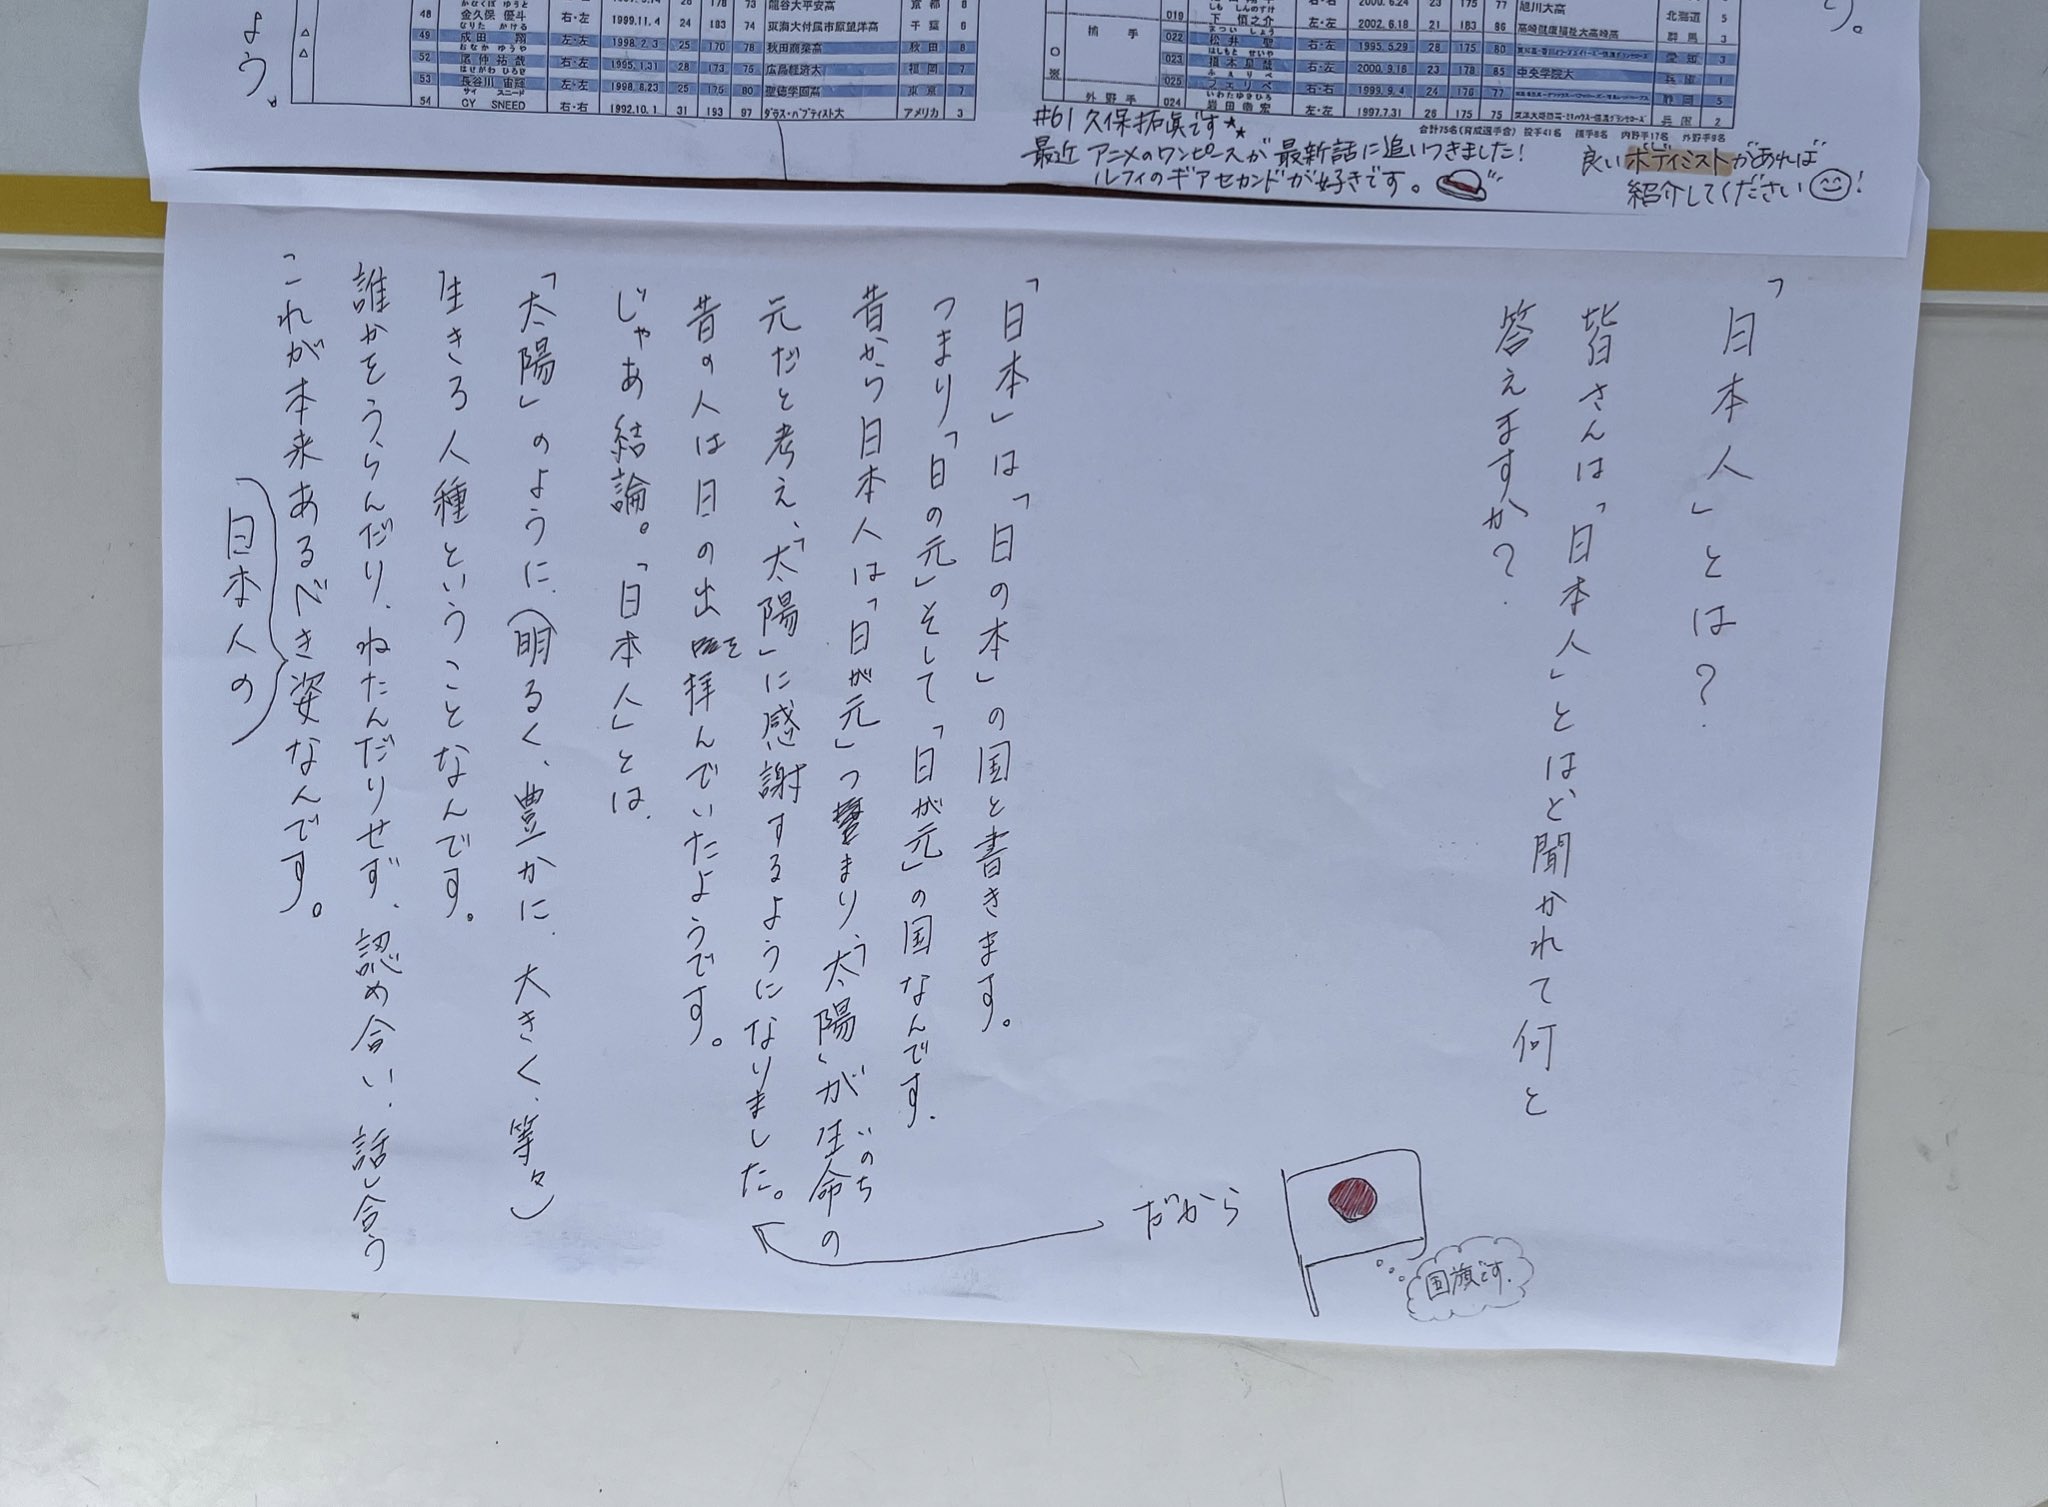 よう。
り。
48 金久保 優斗 右・左 1999.11.4 24 183 74 東海大付属市原望洋高 千葉 6
なりた かける
49 成田 翔 左・左 1998.2.3 25 170 78 秋田商業高 秋田 8
おなか ゆうや
52 尾仲 祐哉 右・左 1995.1.31 28 173 75 広島経済大 福岡 7
はせがわ ひろき
53 長谷川 宙輝 左・左 1998.8.23 25 175 80 聖徳学園高 東京 7
サイ スニード
54 CY SNEED 右・右 1992.10.1 31 193 97 ダラス・バプティスト大 アメリカ 3
旭川大高 北海道 5
しも しんのすけ
019 下 慎之介 左・左 2002.6.18 21 183 86 高崎健康福祉大高崎高 群馬 3
捕手
まつい しょう
022 松井 聖 右・左 1995.5.29 28 175 80 愛知 3
はしもと せいや
023 橋本 星哉 右・左 2000.9.16 23 178 85 中央学院大 兵庫 1
ふぇりぺ
025 フェリペ 右・右 1999.9.4 24 176 77 静岡 5
外野手
いわたゆきひろ
024 岩田 幸宏 左・左 1997.7.31 26 175 75 兵庫 2
合計75名(育成選手含) 投手41名 捕手8名 内野手17名 外野手9名
#61 久保拓眞です★★
最近 アニメのワンピースが最新話に追いつきました!
ルフィのギアセカンドが好きです。
良いボディミストがあれば
紹介してください!
「日本人」とは?
皆さんは「日本人」とはど聞かれて何と
答えますか?
「日本」は「日の本」の国と書きます。
つまり「日の元」そして「日が元」の国なんです.
昔から日本人は「日が元」つまり、「太陽」が生命の
いのち
元だと考え、「太陽」に感謝するようになりました。
昔の人は日の出を拝んでいたようです。
じゃあ結論。「日本人」とは、
「太陽」のように、(明るく、豊かに、大きく、等々)
生きる人種ということなんです。
誰かをうらんだり、ねたんだりせず、認め合い、話し合う
これが本来あるべき姿なんです。
日本人の
だから
国旗です.